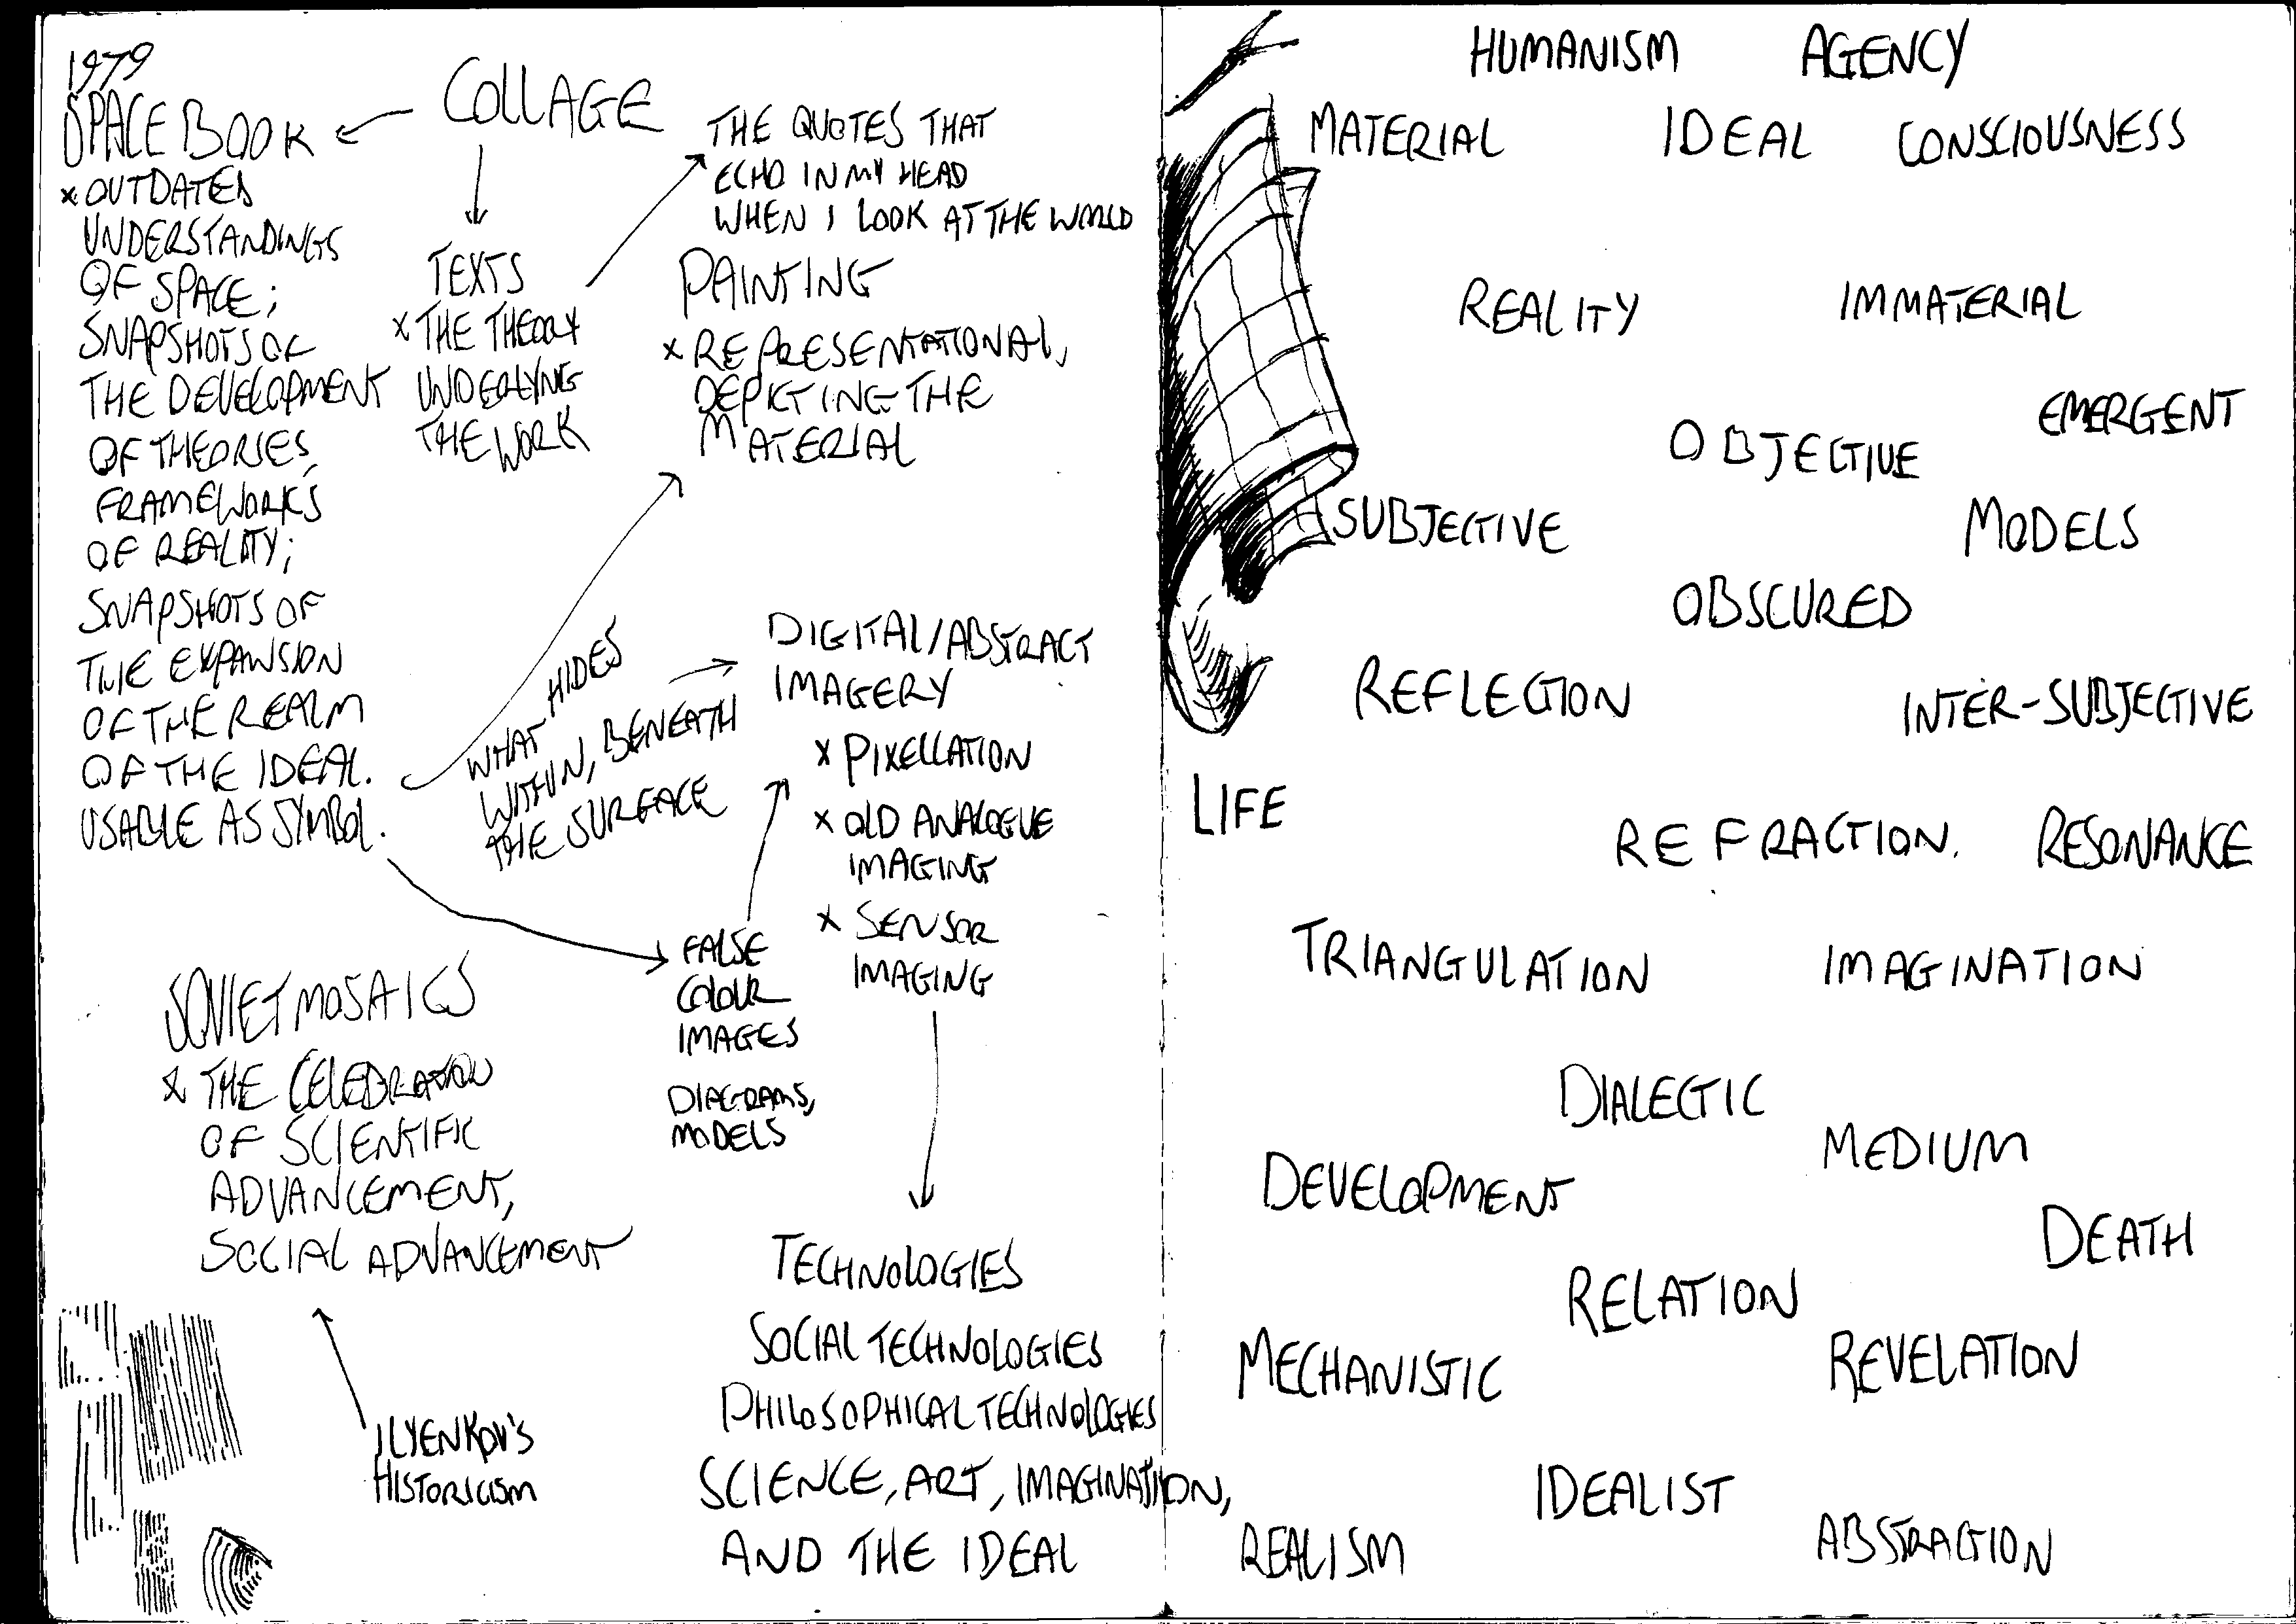 1979
SPACE BOOK
x OUTDATED
UNDERSTANDINGS
OF SPACE;
SNAPSHOTS OF
THE DEVELOPMENT
OF THEORIES,
FRAMEWORKS
OF REALITY;
SNAPSHOTS OF
THE EXPANSION
OF THE REALM
OF THE IDEAL.
USABLE AS SYMBOL.
COLLAGE
TEXTS
x THE THEORY
UNDERLYING
THE WORK
THE QUOTES THAT
ECHO IN MY HEAD
WHEN I LOOK AT THE WORLD
PAINTING
x REPRESENTATIONAL,
DEPICTING THE
MATERIAL
WHAT HIDES
WITHIN, BENEATH
THE SURFACE
DIGITAL/ABSTRACT
IMAGERY
x PIXELLATION
x OLD ANALOGUE
IMAGING
x SENSOR
IMAGING
FALSE
COLOUR
IMAGES
DIAGRAMS,
MODELS
SOVIET MOSAICS
x THE CELEBRATION
OF SCIENTIFIC
ADVANCEMENT,
SOCIAL ADVANCEMENT
ILYENKOV'S
HISTORICISM
TECHNOLOGIES
SOCIAL TECHNOLOGIES
PHILOSOPHICAL TECHNOLOGIES
SCIENCE, ART, IMAGINATION,
AND THE IDEAL
HUMANISM AGENCY
MATERIAL IDEAL CONSCIOUSNESS
REALITY IMMATERIAL
EMERGENT
OBJECTIVE
SUBJECTIVE MODELS
OBSCURED
REFLECTION INTER-SUBJECTIVE
LIFE
REFRACTION. RESONANCE
TRIANGULATION IMAGINATION
DIALECTIC
MEDIUM
DEVELOPMENT
DEATH
RELATION
MECHANISTIC REVELATION
IDEALIST
REALISM ABSTRACTION